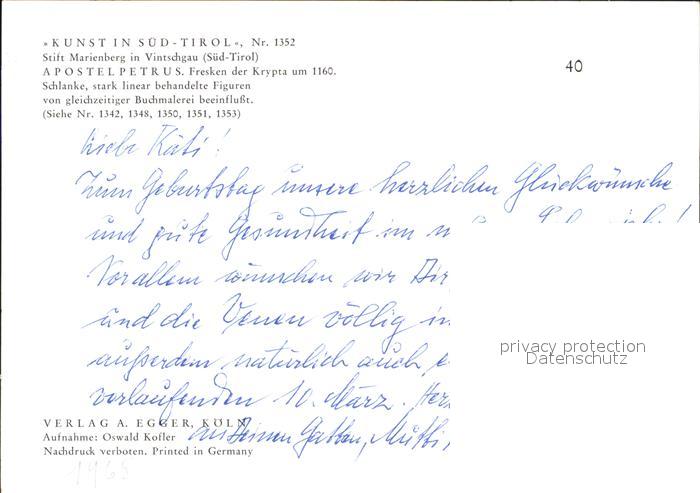 »KUNST IN SÜD-TIROL«, Nr. 1352
Stift Marienberg in Vintschgau (Süd-Tirol)
APOSTEL PETRUS. Fresken der Krypta um 1160.
Schlanke, stark linear behandelte Figuren
von gleichzeitiger Buchmalerei beeinflußt.
(Siehe Nr. 1342, 1348, 1350, 1351, 1353)
40
Liebe Käti!
Zum Geburtstag unsere herzlichen Glückwünsche
und gute Gesundheit im
Vor allem wünschen wir Dir
und die Venen völlig in
außerdem natürlich auch
verlaufenden 10. März.
an Deinen Gatten, Mutti,
privacy protection
Datenschutz
VERLAG A. EGGER, KÖLN
Aufnahme: Oswald Kofler
Nachdruck verboten. Printed in Germany